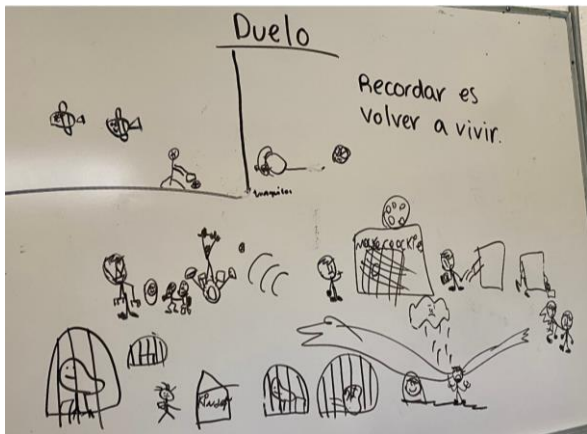 Duelo
Recordar es
volver a vivir.
Kinder